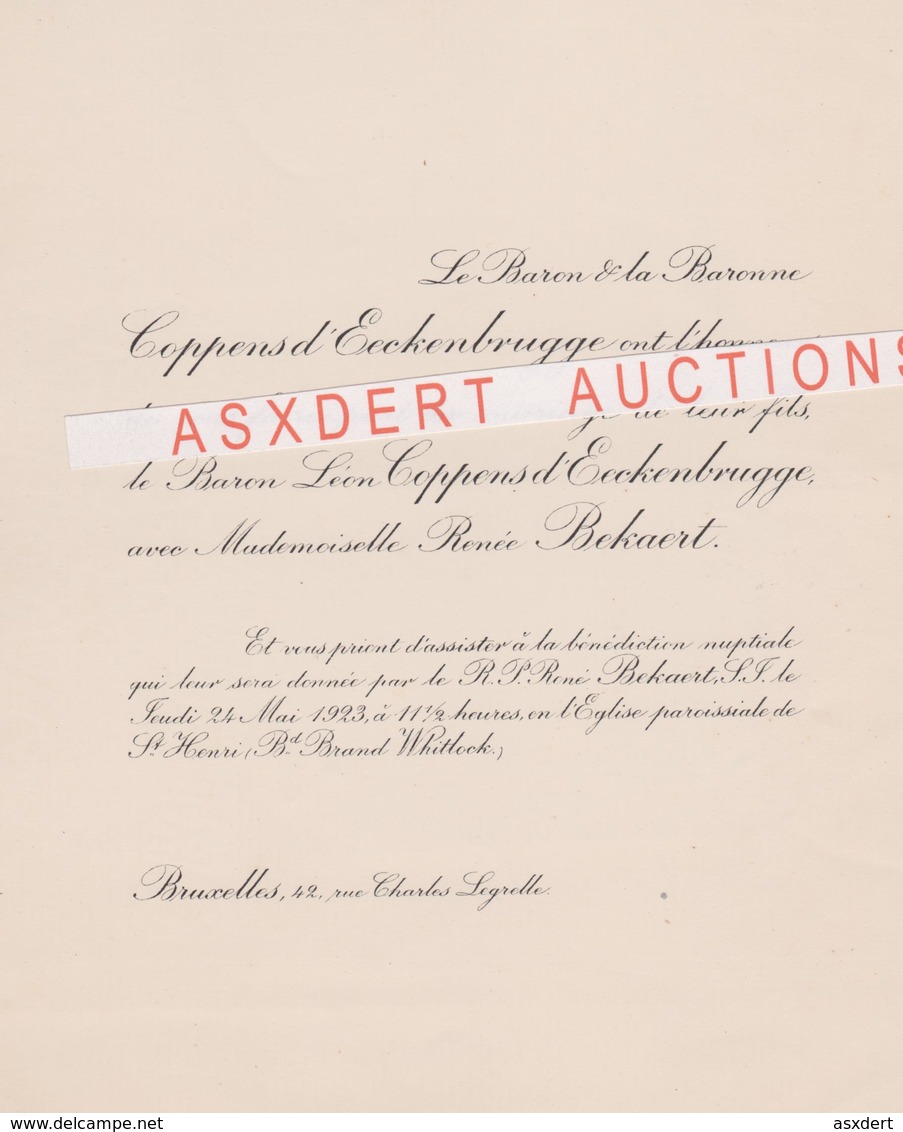 Le Baron & la Baronne
Coppens d'Eeckenbrugge ont l'honneur
ASXDERT AUCTIONS
de leur fils,
le Baron Léon Coppens d'Eeckenbrugge,
avec Mademoiselle Renée Bekaert.
Et vous prient d'assister à la bénédiction nuptiale
qui leur sera donnée par le R.P. René Bekaert, S.J. le
Jeudi 24 Mai 1923, à 11 1/2 heures, en l'Eglise paroissiale de
St Henri, (Bd Brand Whitlock.)
Bruxelles, 42, rue Charles Legrelle.
www.delcampe.net
asxdert